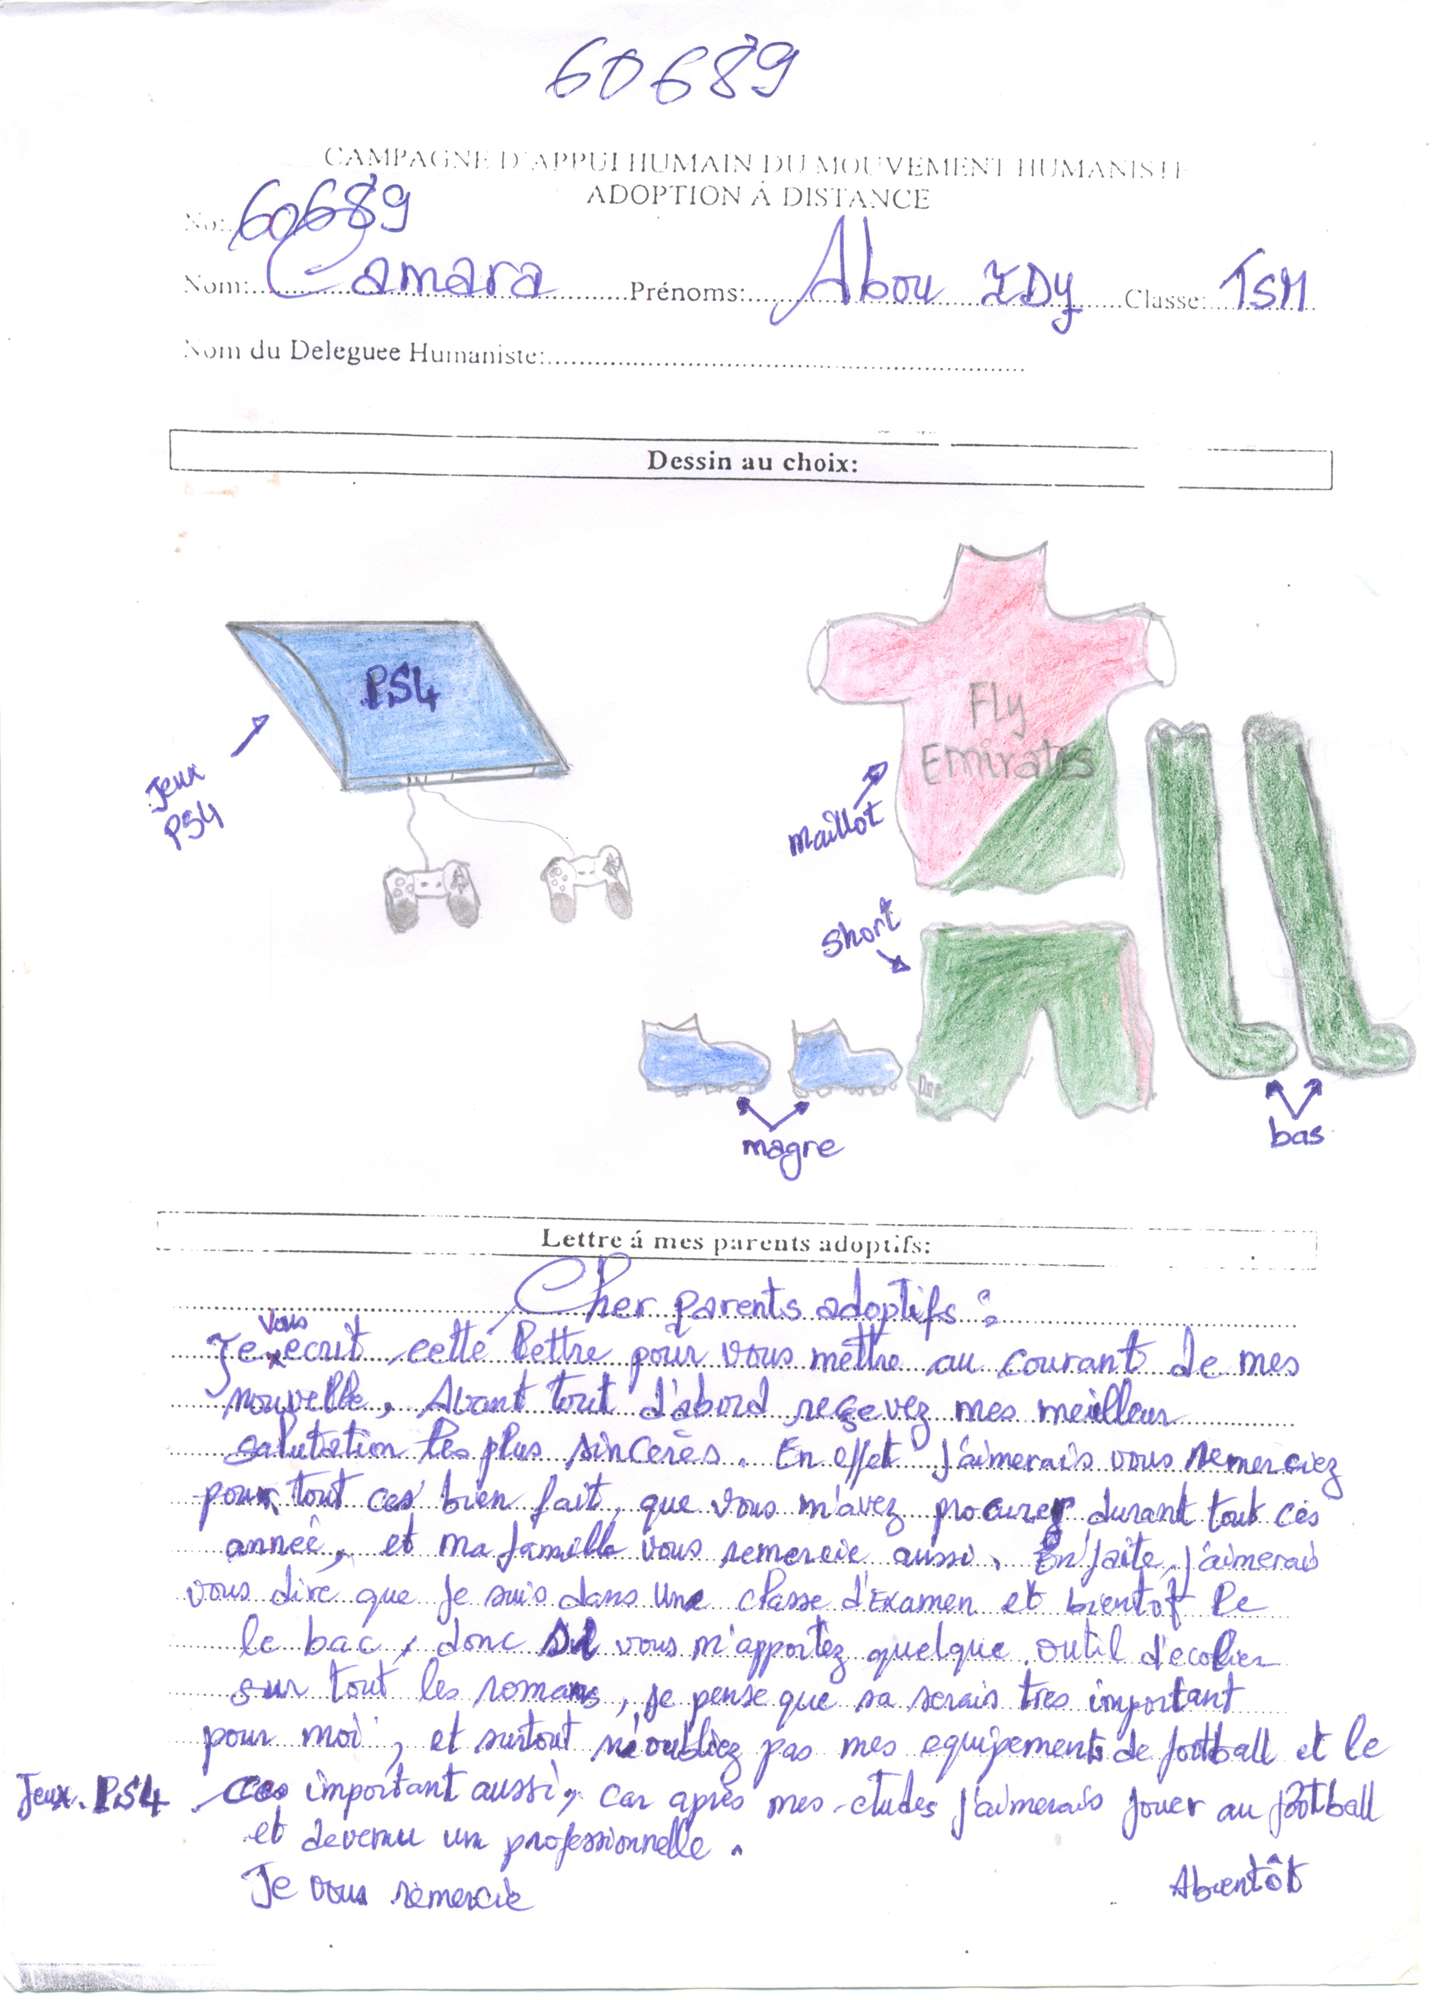 60689
CAMPAGNE D'APPUI HUMAIN DU MOUVEMENT HUMANISTE
ADOPTION Á DISTANCE
No: 60689
Nom: Camara Prénoms: Abou IDy Classe: TSM
Nom du Deleguee Humaniste:
Dessin au choix:
PS4
Jeux
PS4
Fly
Emirates
maillot
short
magre
bas
Lettre á mes parents adoptifs:
Cher parents adoptifs :
Je vous ecrit cette lettre pour vous mettre au courant de mes
nouvelle, Avant tout d'abord reçevez mes meilleur
salutation les plus sincerès. En effet j'aimerais vous remerciez
pour tout ces bien fait, que vous m'avez procurer durant tout ces
année, et ma famille vous remercie aussi. En faite, j'aimerais
vous dire que je suis dans une classe d'Examen et bientot le
le bac, donc si vous m'apportez quelque outil d'ecolier
sur tout les romans, je pense que sa serais tres important
pour moi, et surtout n'oubliez pas mes equipements de football et le
Jeux PS4 ces important aussi, car après mes etudes j'aimerais jouer au football
et devenu un professionnelle.
Je vous remercie Abientôt